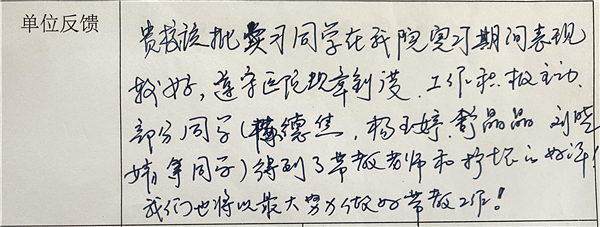 单位反馈
贵校该批实习同学在我院实习期间表现
较好,遵守医院规章制度.工作积极主动.
部分同学(德焦,杨玉婷.舒晶晶 刘晓
婧等同学)得到了带教老师和护士长的好评!
我们也将以最大努力做好带教工作!